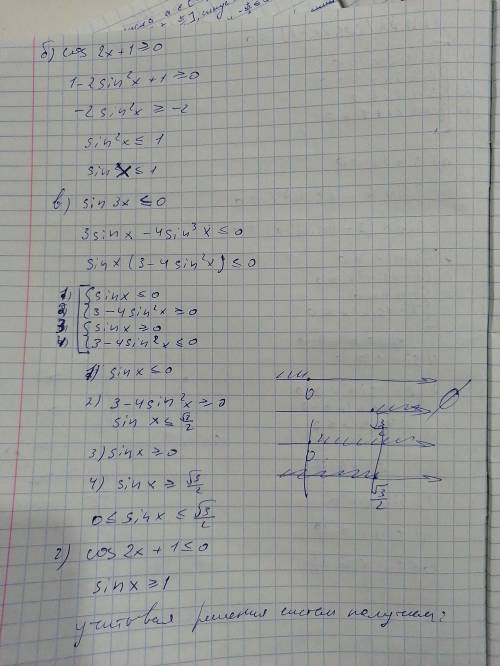 б) cos 2x+1≥0
1-2sin²x+1≥0
-2sin²x≥-2
sin²x≤1
sin x≤1
в) sin 3x≤0
3sinx-4sin³x≤0
sinx(3-4sin²x)≤0
1) sinx≤0
2) 3-4sin²x≥0
3) sinx≥0
4) 3-4sin²x≤0
1) sinx≤0
0
2) 3-4sin²x≥0
sin x≤√3/2
√3/2
∅
3) sinx≥0
0
4) sinx≥√3/2
√3/2
0≤sinx≤√3/2
г) cos 2x+1≤0
sinx≥1
учитовая решения систем получаем: